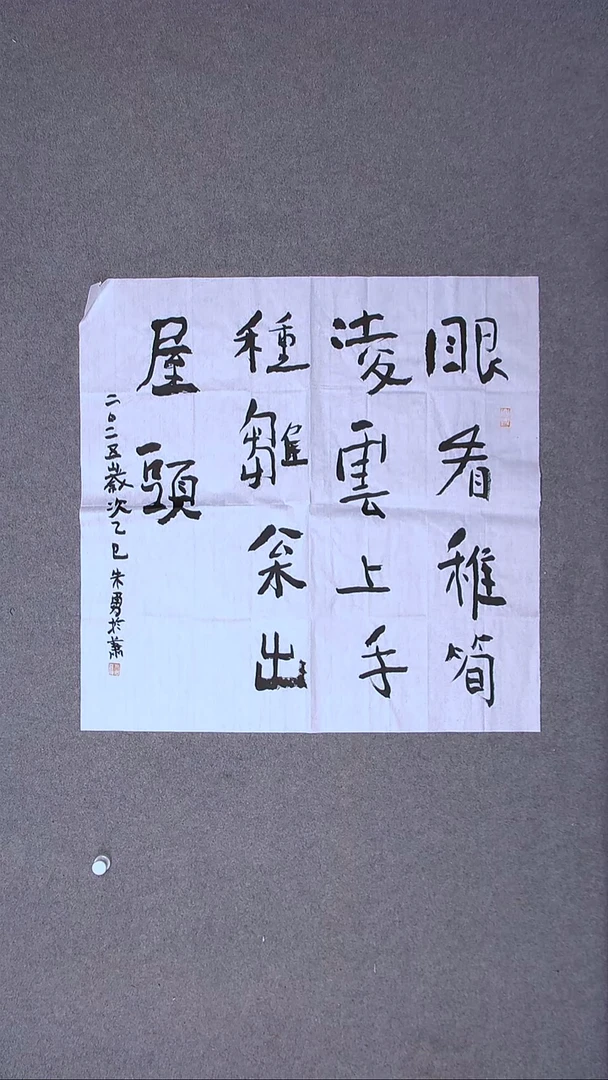 眼看稚筍
凌雲上手
種雛枀出
屋頭
二〇二五歲次乙巳朱勇於蕭